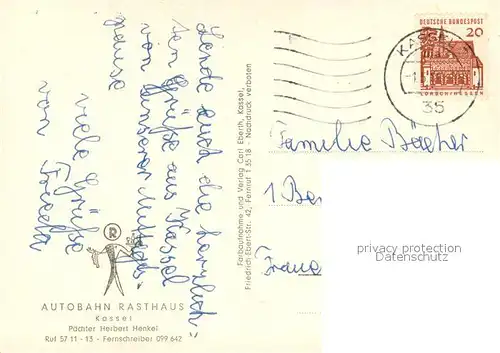 Sende euch die herzlich-
sten Grüße aus Kassel
von unserer Mittags-
pause
viele Grüße
von
R
AUTOBAHN RASTHAUS
Kassel
Pächter Herbert Henkel
Ruf 57 11 - 13 - Fernschreiber 099 642
Farbaufnahme und Verlag Carl Eberth, Kassel,
Friedrich-Ebert-Str. 42, Fernruf 1 35 18 · Nachdruck verboten
DEUTSCHE BUNDESPOST
20
LORSCH/HESSEN
KASSEL
35
Familie Bächer
1 Ber
privacy protection
Datenschutz